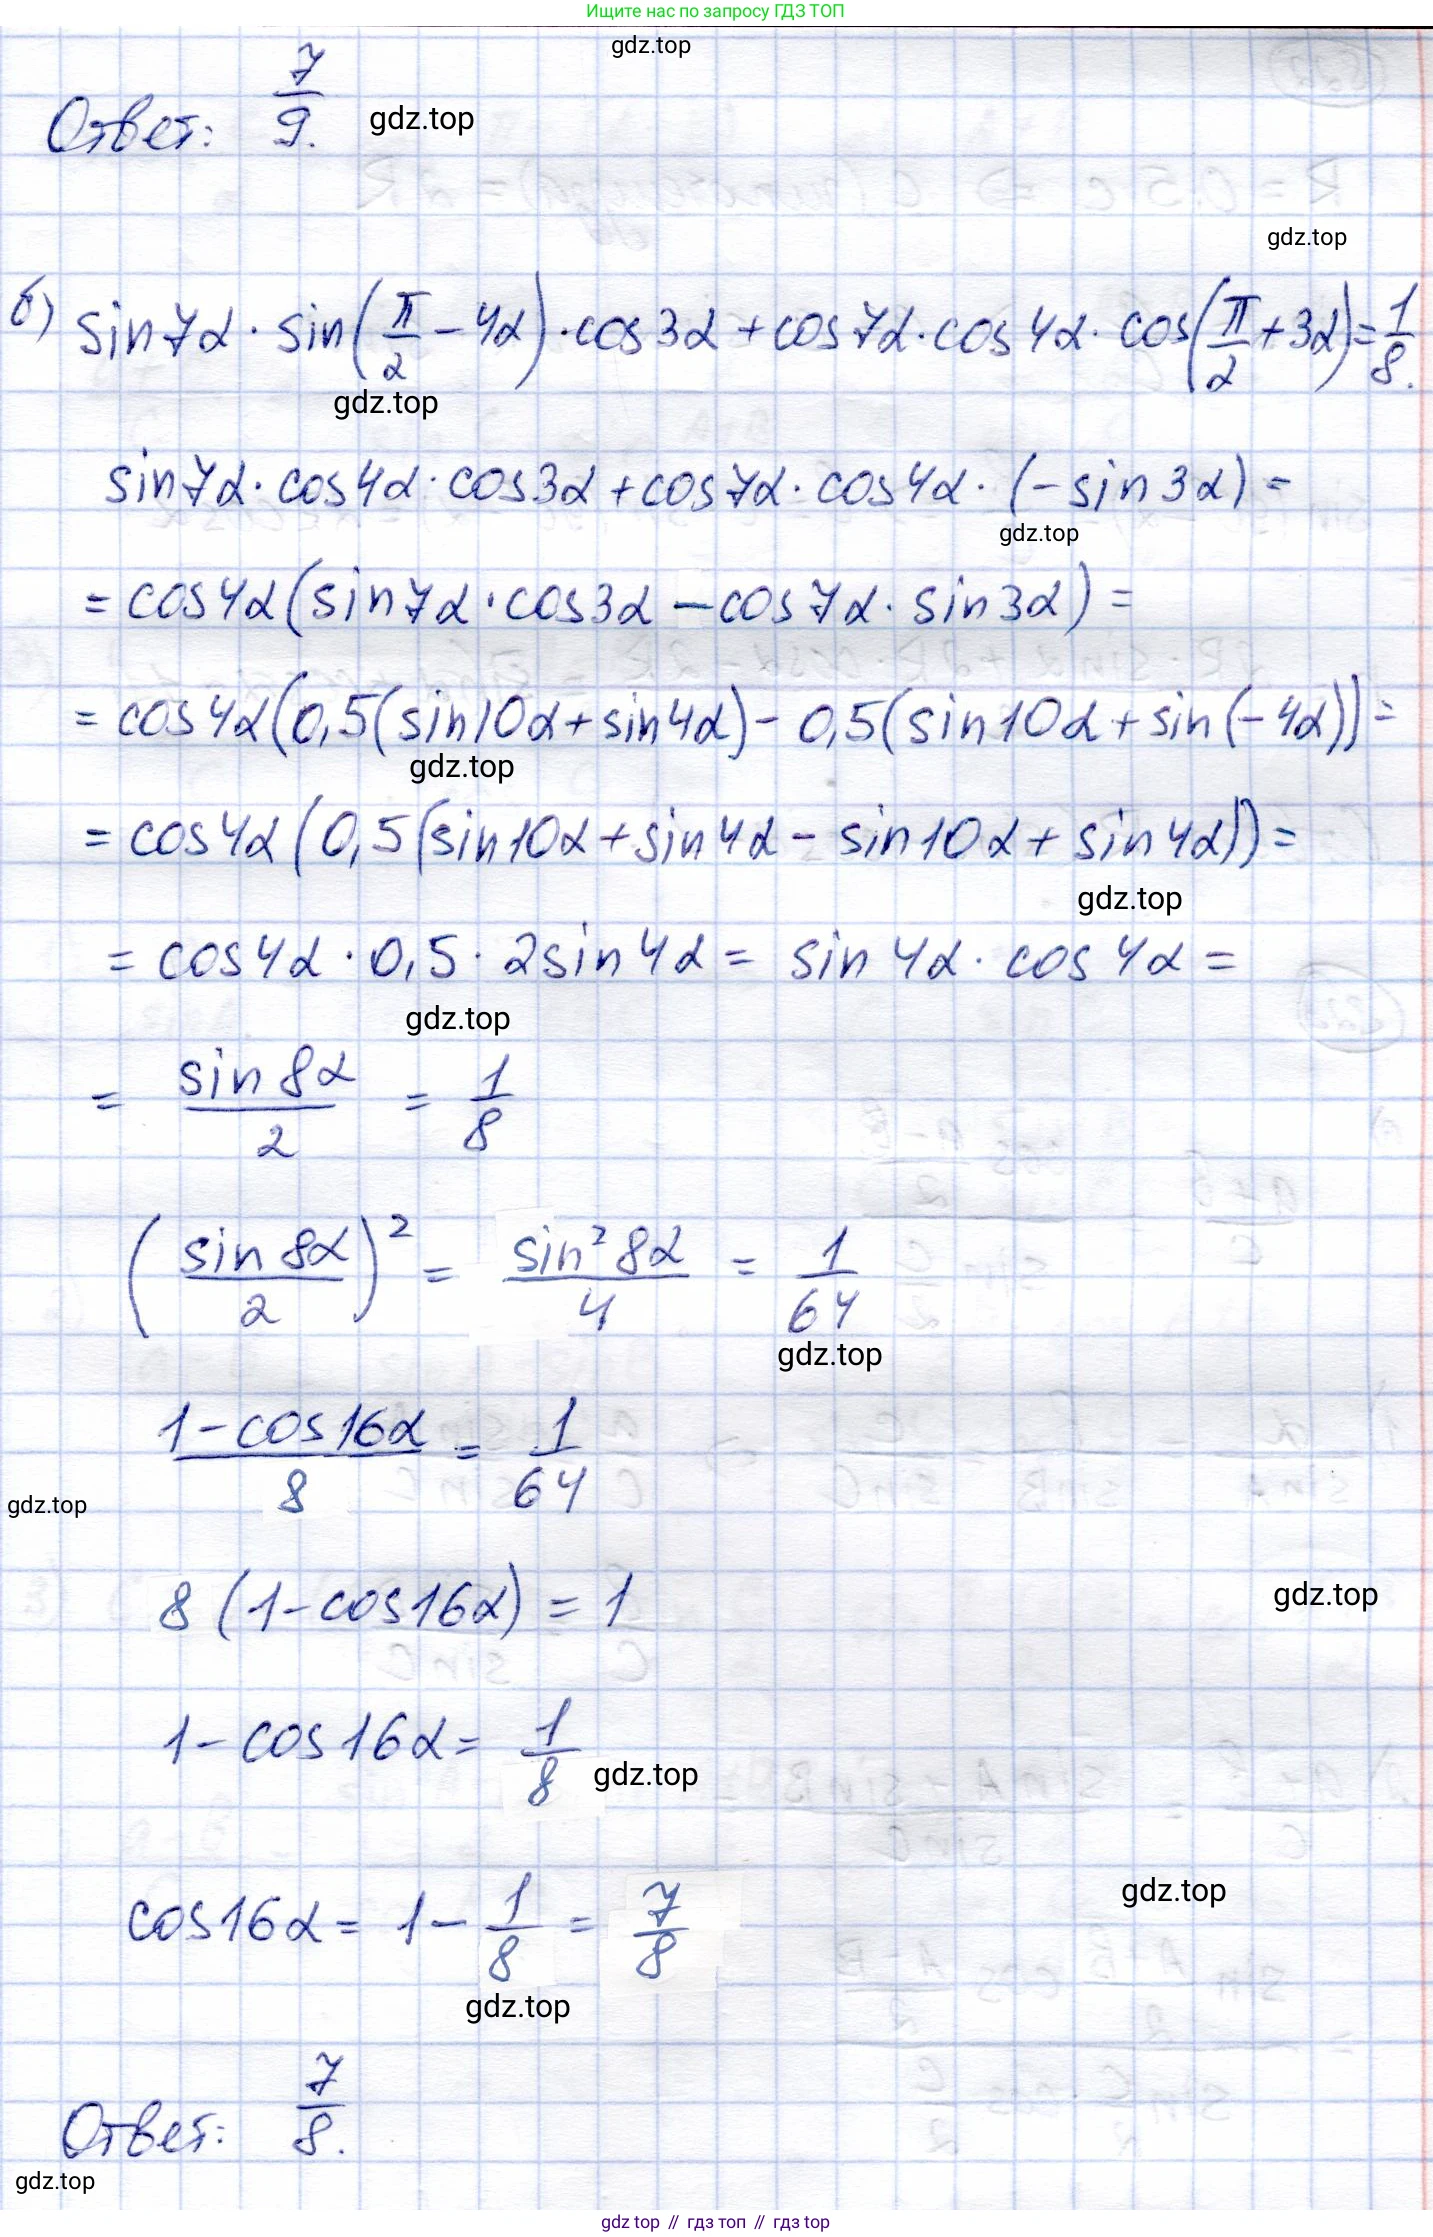 Ищите нас по запросу ГДЗ ТОП
gdz.top
Ответ: 7/9.
gdz.top
gdz.top
б) sin7α · sin(π/2 − 4α) · cos3α + cos7α · cos4α · cos(π/2 + 3α) = 1/8.
gdz.top
sin7α · cos4α · cos3α + cos7α · cos4α · (−sin3α) =
gdz.top
= cos4α(sin7α · cos3α − cos7α · sin3α) =
= cos4α(0,5(sin10α + sin4α) − 0,5(sin10α + sin(−4α)) =
gdz.top
= cos4α(0,5(sin10α + sin4α − sin10α + sin4α)) =
gdz.top
= cos4α · 0,5 · 2sin4α = sin4α · cos4α =
gdz.top
= sin8α/2 = 1/8
(sin8α/2)² = sin²8α/4 = 1/64
gdz.top
1−cos16α/8 = 1/64
gdz.top
8(1−cos16α) = 1
gdz.top
1−cos16α = 1/8
gdz.top
gdz.top
cos16α = 1 − 1/8 = 7/8
gdz.top
Ответ: 7/8.
gdz.top
gdz top // гдз топ // gdz top